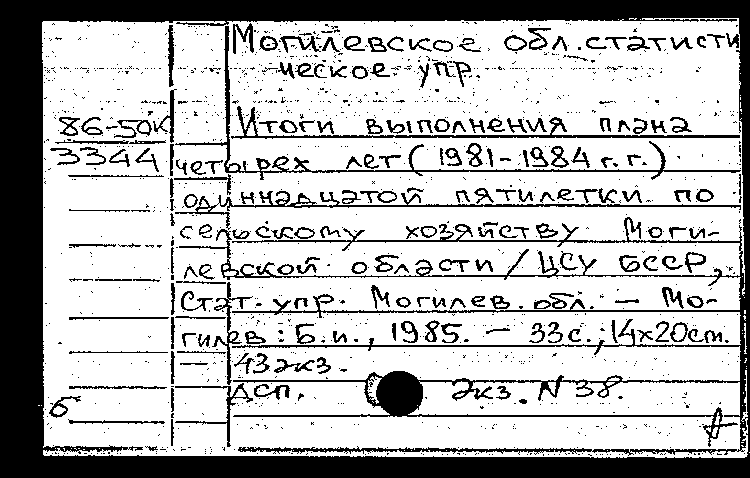 Могилевское обл. статисти
ческое упр.
86-50К Итоги выполнения плана
3344 четырех лет (1981-1984 г. г.)
одиннадцатой пятилетки по
сельскому хозяйству Моги-
левской области / ЦСУ БССР,
Стат. упр. Могилев. обл. — Мо-
гилев: Б. и., 1985. — 33с.; 14х20см.
— 43 экз.
ДСП. Экз. N 38.
б